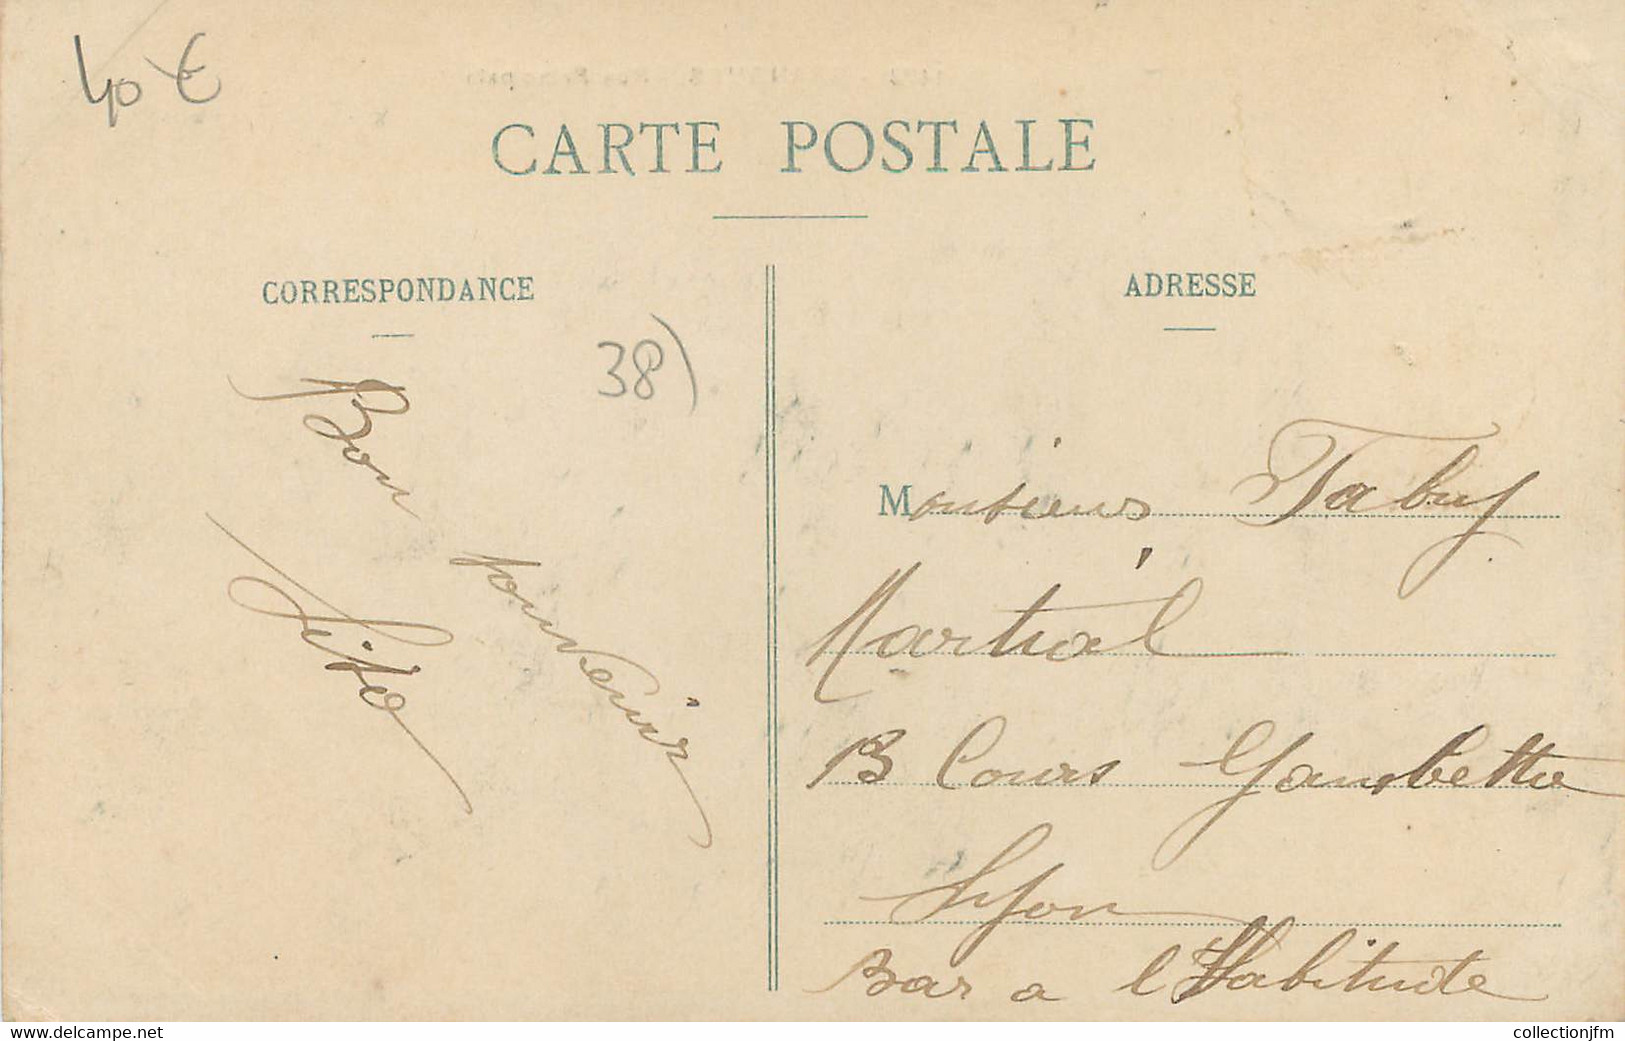 40 €
CARTE POSTALE
CORRESPONDANCE
38)
Bon
souvenir
ADRESSE
Monsieur Tabuy
Martial
13 Cours Gambetta
Lyon
Bar a l'Habitude
collectionjfm